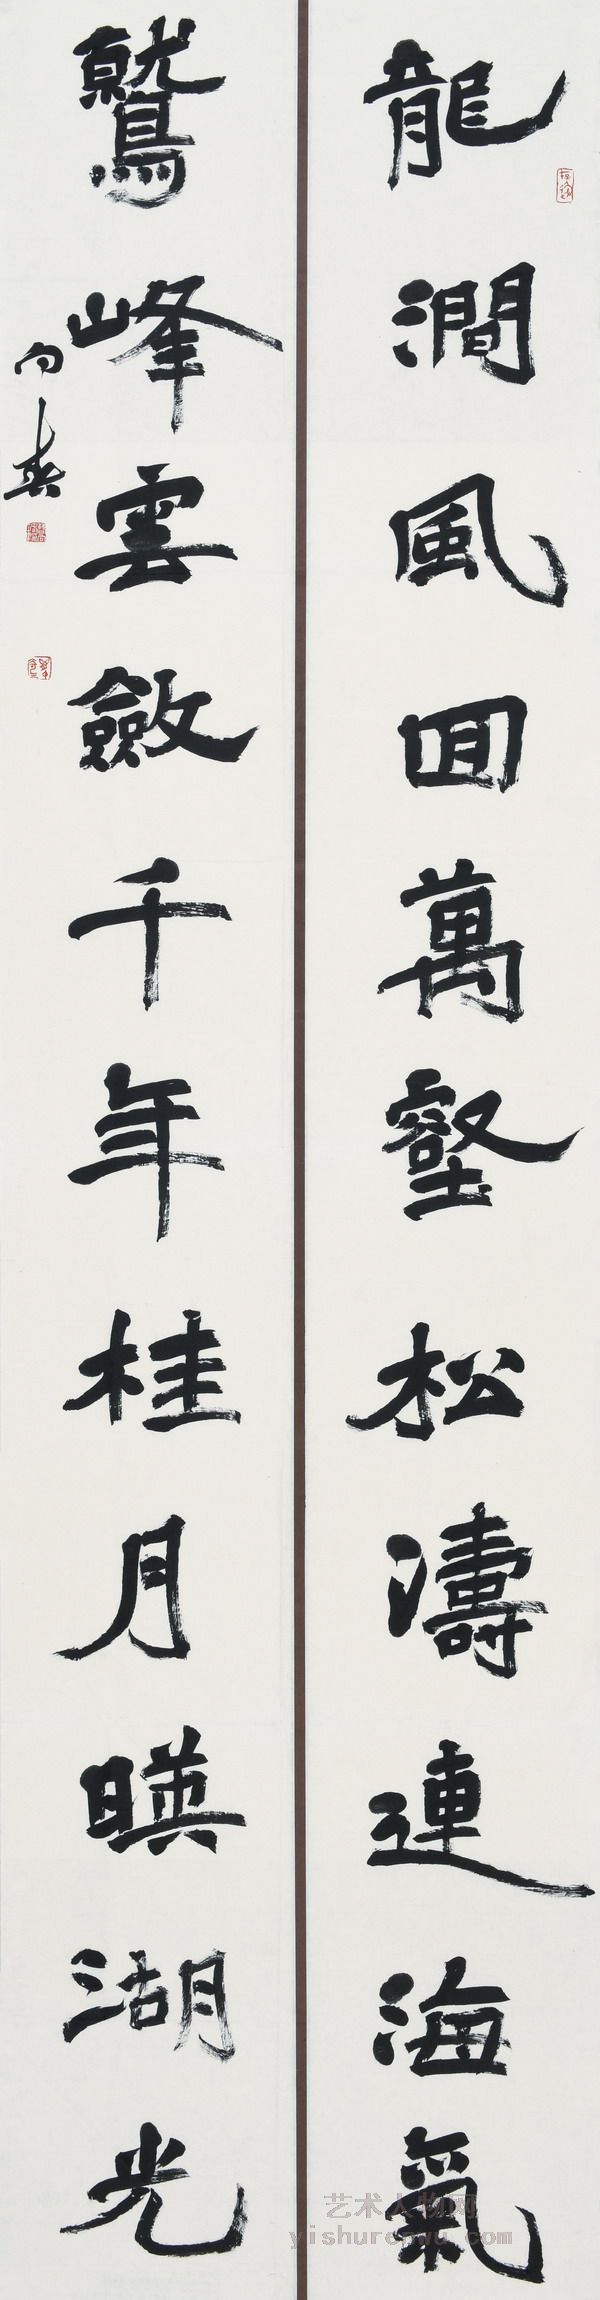 龍澗風回萬壑松濤連海氣
鷲峰雲斂千年桂月暎湖光
艺术人物网
yishurenwu.com